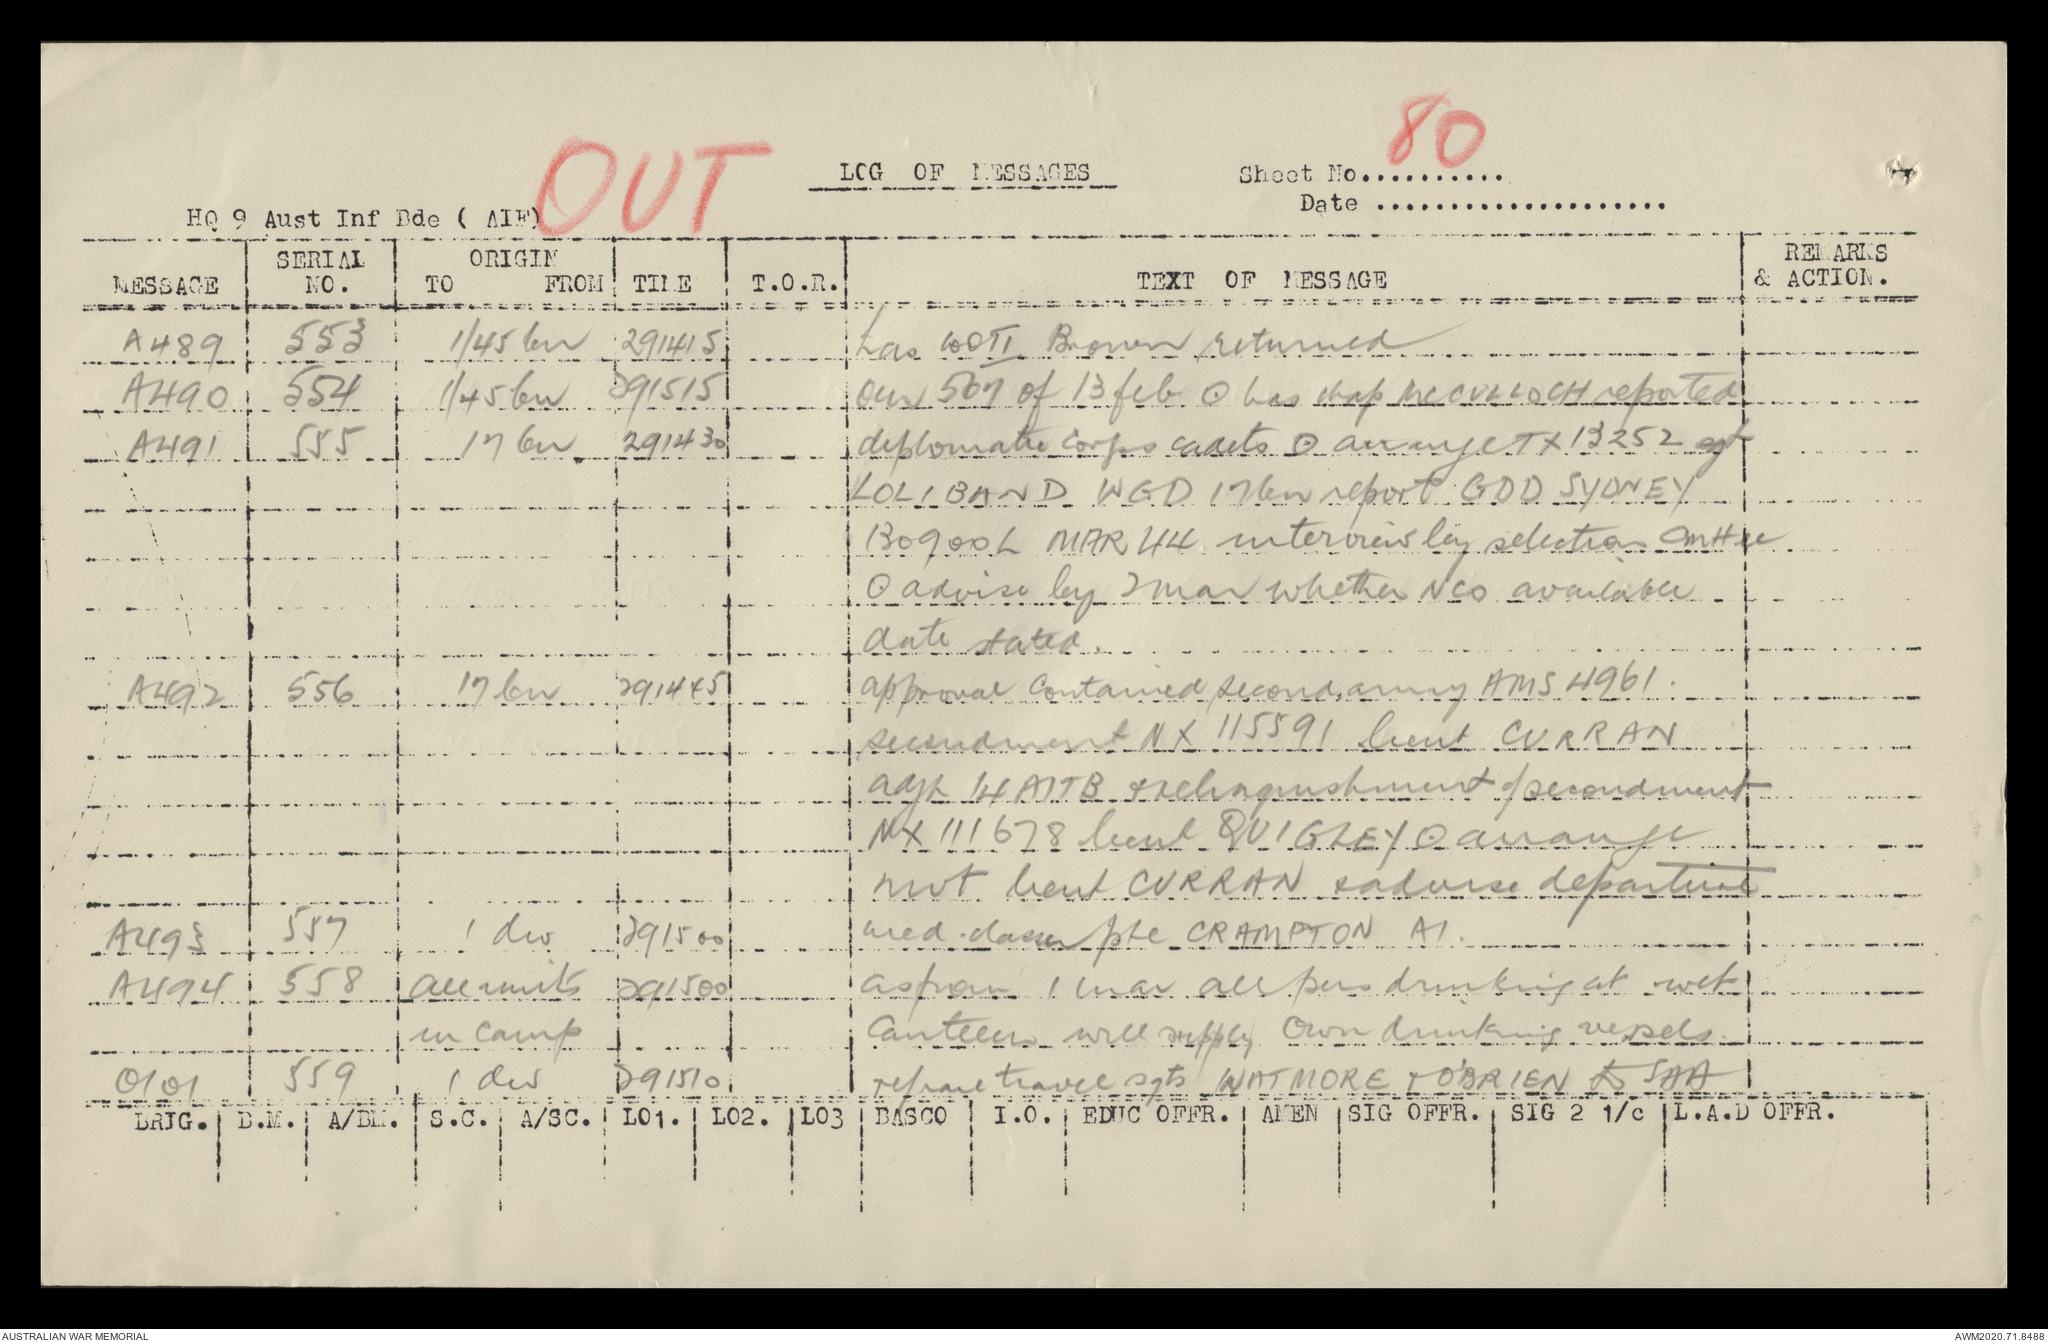 OUT
80
LOG OF MESSAGES
Sheet No..........
Date ....................
HQ 9 Aust Inf Bde ( AIF)
MESSAGE SERIAL NO. ORIGIN TO FROM TIME T.O.R. TEXT OF MESSAGE REMARKS & ACTION.
A489 553 1/45 bn 291415 has WOII Brown returned
A490 554 1/45 bn 291515 our 567 of 13 feb ⊙ has chap McCULLOCH reported
A491 555 17 bn 291430 diplomatic corps cadets ⊙ arrange TX13252 sgt
LOLIBAND WGD 17 bn report GDD SYDNEY
130900L MAR 44 interview by selection cmttee
⊙ advise by 2 mar whether NCO available
date stated.
A492 556 17 bn 291445 approval contained second army AMS 4961.
secondment NX 115591 lieut CURRAN
adjt 14 AITB & relinquishment of secondment
NX 111678 lieut QUIGLEY ⊙ arrange
mvt lieut CURRAN & advise departure
A493 557 1 div 291500 med. class pte CRAMPTON A1.
A494 558 all units 291500 as from 1 mar all pers drinking at wet
in camp canteen will supply own drinking vessels.
O101 559 1 div 291510 travel sgts WATMORE & O'BRIEN to SAA
BRIG. B.M. A/BM. S.C. A/SC. LO1. LO2. LO3 BASCO I.O. EDUC OFFR. AMEN SIG OFFR. SIG 2 1/c L.A.D OFFR.
AUSTRALIAN WAR MEMORIAL
AWM2020.71.8488